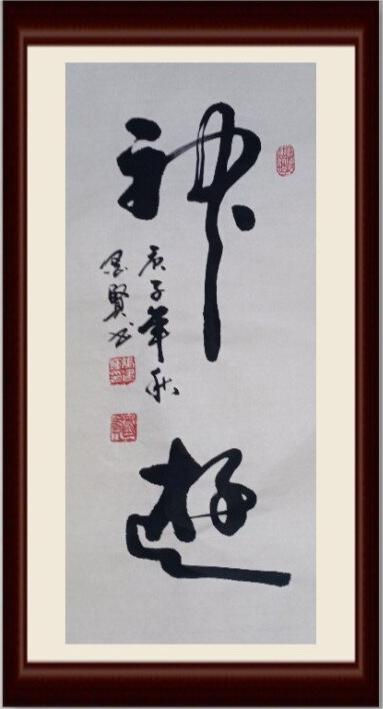 神遊
庚子年秋
思賢书